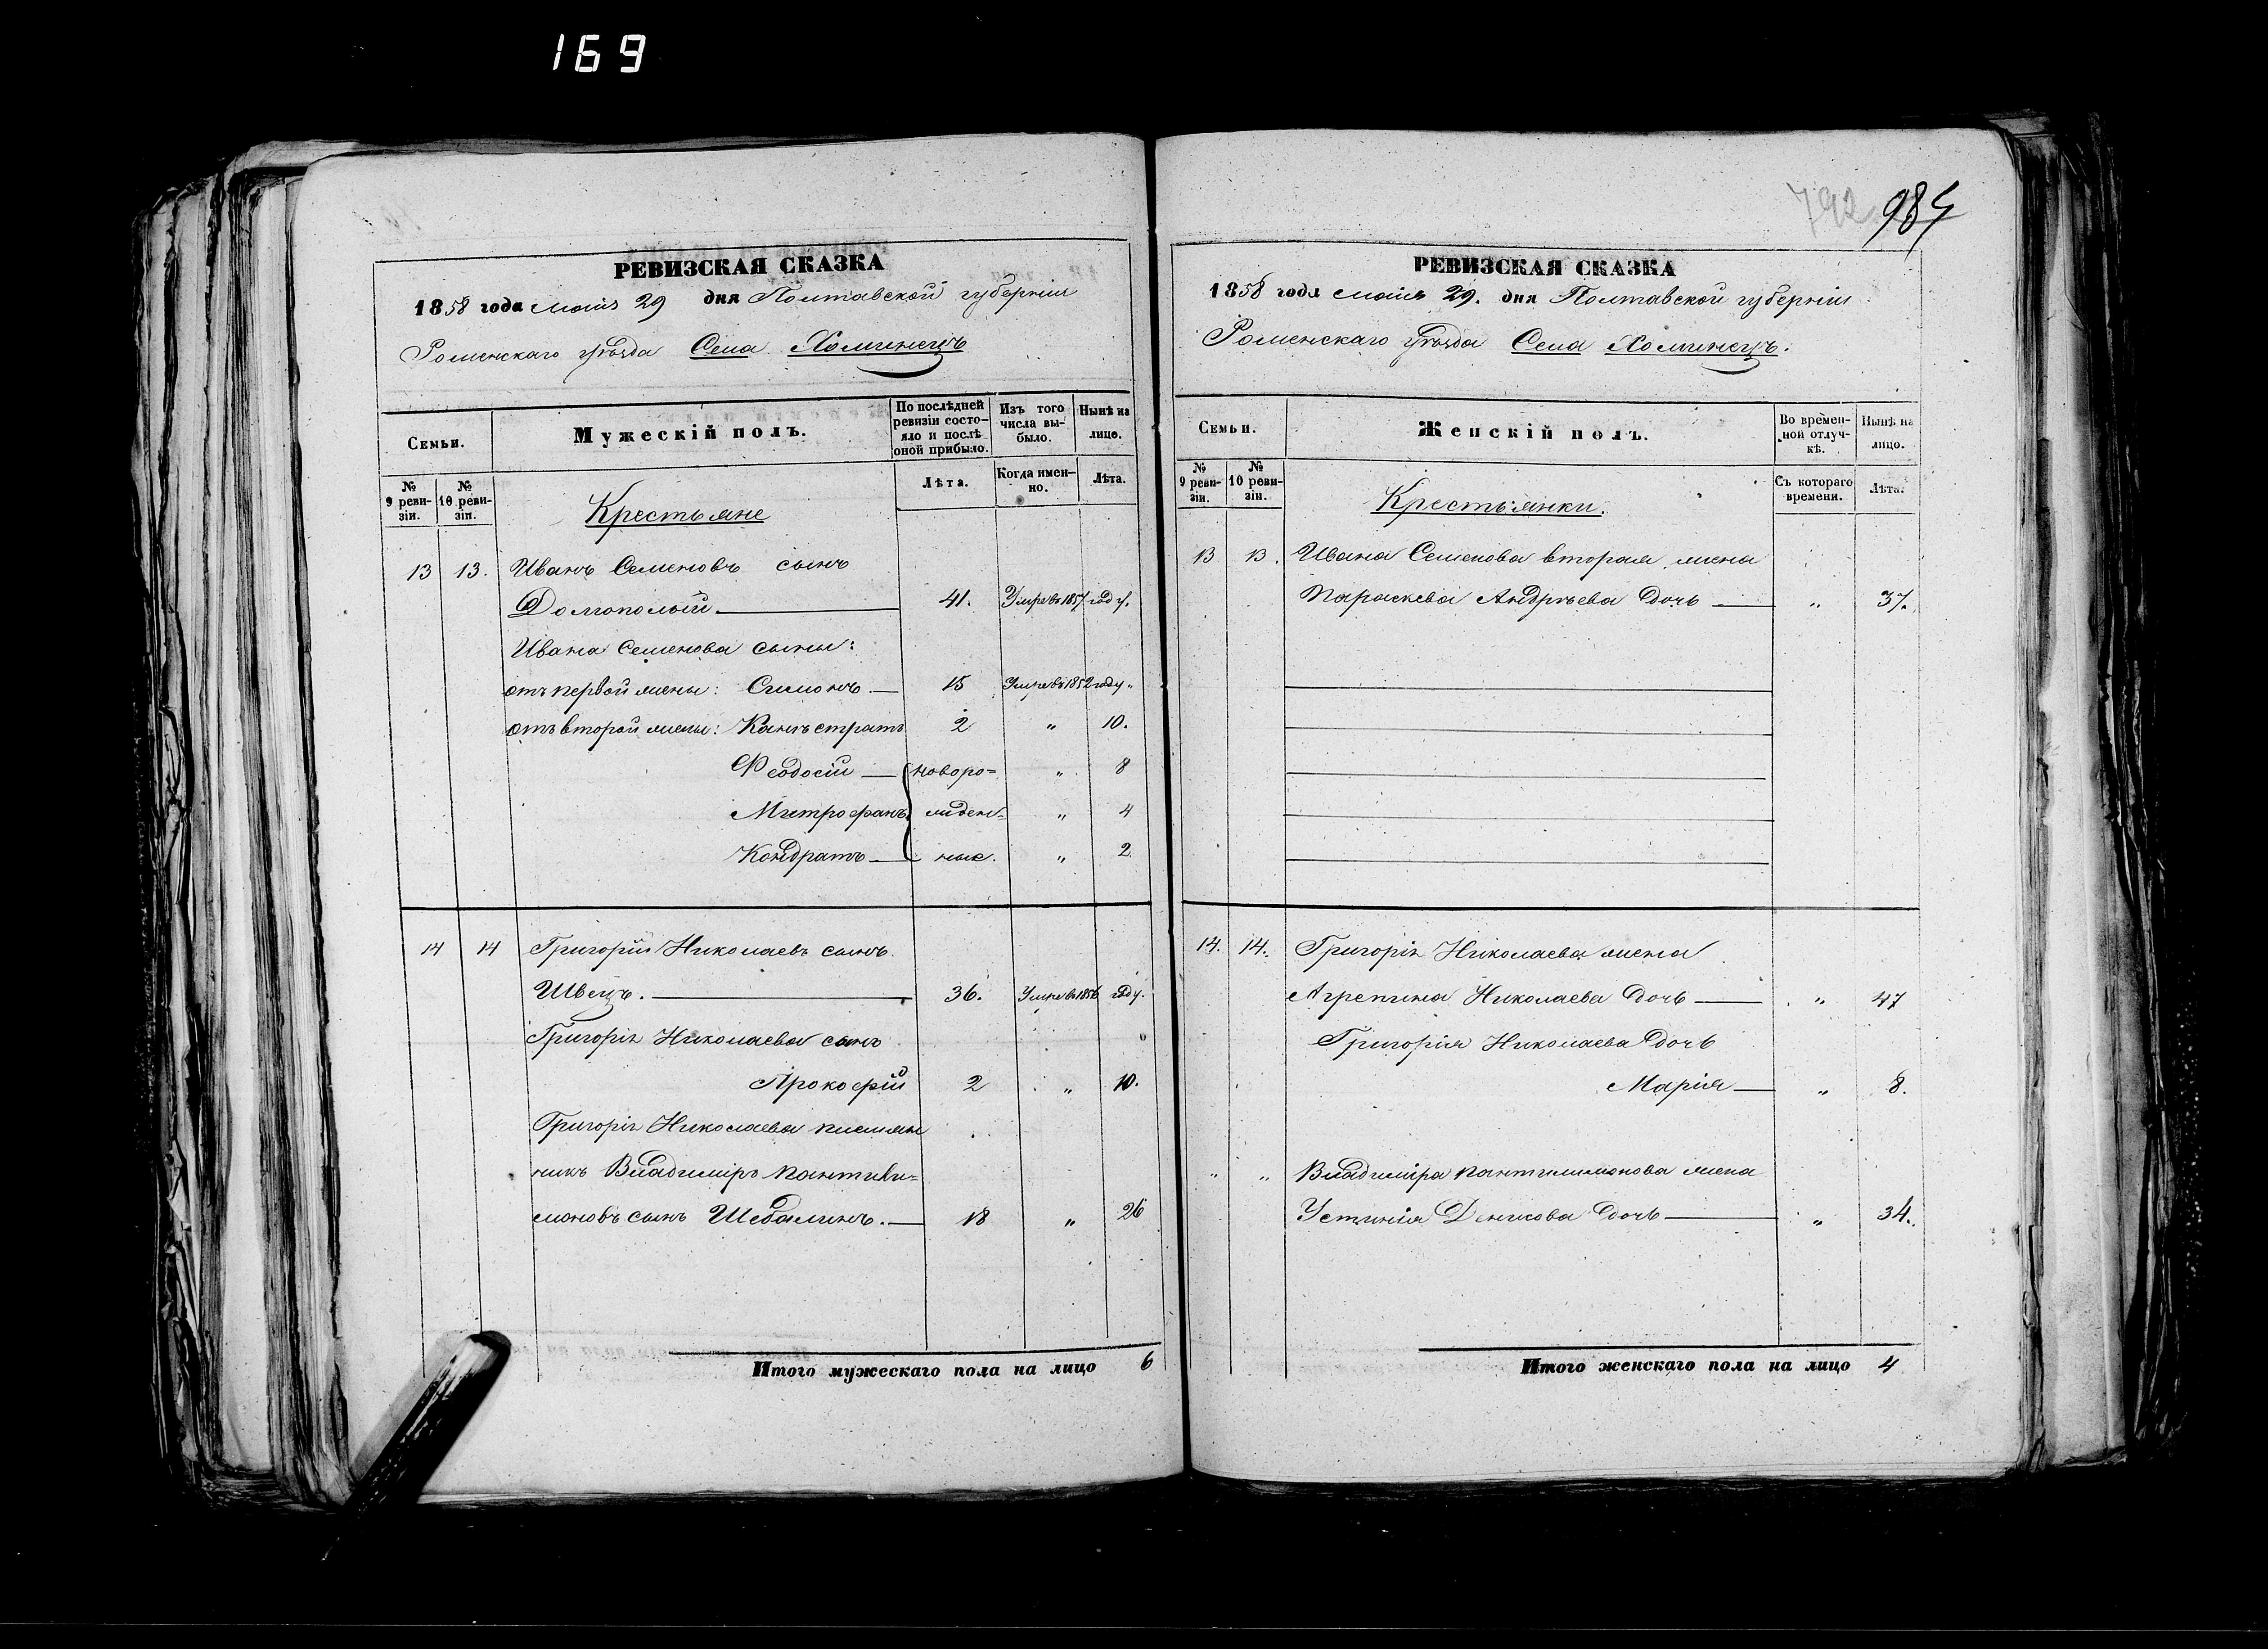 169
792 984
РЕВИЗСКАЯ СКАЗКА
1858 года мая 29 дня Полтавской губернии
Роменскаго уѣзда Села Хоминецъ
Семьи.
Мужескій полъ.
По послѣдней ревизіи состояло и послѣ оной прибыло.
Изъ того числа выбыло.
Нынѣ на лицо.
№ 9 ревизіи.
№ 10 ревизіи.
Крестьяне
Лѣта.
Когда именно.
Лѣта.
13 13. Иванъ Семеновъ сынъ
Домополый 41. Умре въ 1857 году.
Ивана Семенова сыны:
отъ первой жены: Симонъ. 15 Умре въ 1852 году "
отъ второй жены: Канъстратъ 2 " 10.
Феодосій новоро= " 8
Митрофанъ жден= " 4
Кондратъ ные. " 2.
14 14 Григорій Николаевъ сынъ
Швецъ. 36. Умре въ 1856 году.
Григорія Николаева сынъ
Прокофій 2 " 10.
Григорія Николаева племян
никъ Владимиръ Пантили=
моновъ сынъ Шебалинъ. 18 " 26
Итого мужескаго пола на лицо 6
РЕВИЗСКАЯ СКАЗКА
1858 года мая 29. дня Полтавской губерніи
Роменскаго уѣзда Села Хоминецъ.
Семьи.
Женскій полъ.
Во временной отлучкѣ.
Нынѣ на лицо.
№ 9 ревизіи.
№ 10 ревизіи.
Крестьянки.
Съ котораго времени.
Лѣта.
13 13. Ивана Семенова вторая жена
Параскева Андрѣева дочь " 37.
14. 14. Григорія Николаева жена
Агрепина Николаева дочь " 47
Григорія Николаева дочь
Марія " 8.
" " Владиміра Пантилимонова жена
Устинія Денисова дочь " 34.
Итого женскаго пола на лицо 4